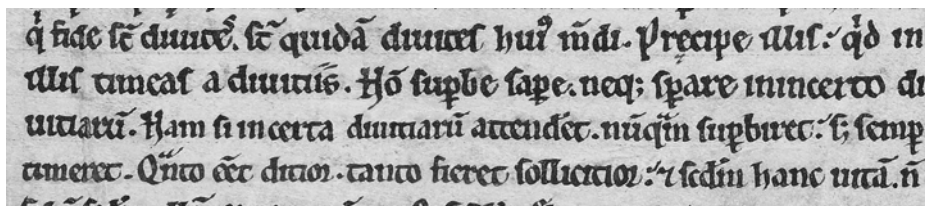 q̇ fide sc̄t diuite᷒. sc̄t quidā diuites hui᷒ m̄di. Precipe illis: qd̓ in
illis timeas a diuitiis. Nō supbe sape. neq; sperare inincerto di
uitiarū. Nam si incerta diuitiarū attendēt. nūq̄m supbiret: s; semp
timeret. Qn̄to eēt ditior. tanto fieret sollicitior: ⁊ scdm̄ hanc uitā. n̄